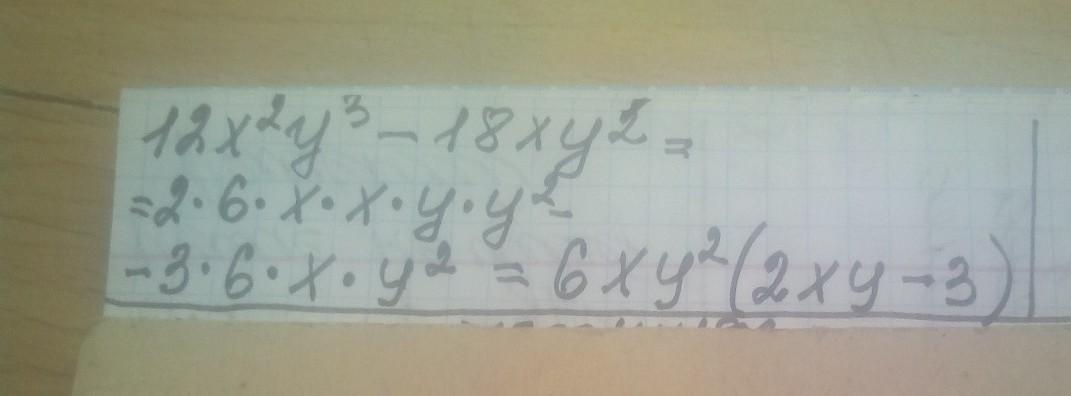 12x²y³ - 18xy² =
=2·6·x·x·y·y² -
-3·6·x·y² = 6xy²(2xy-3)